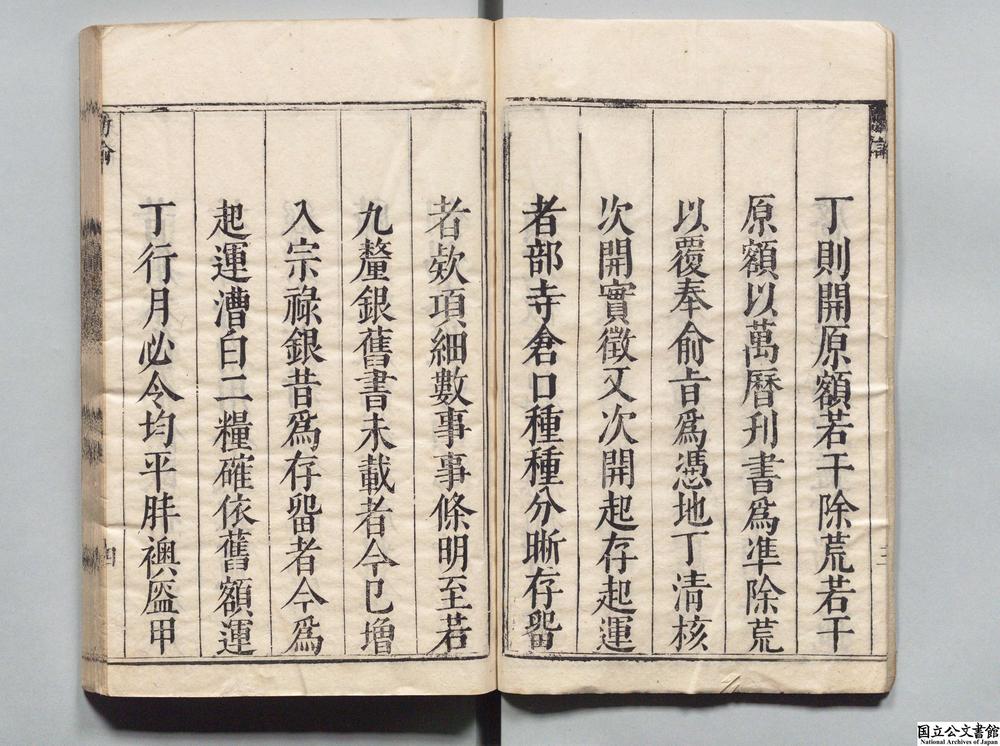 丁則開原額若干除荒若干
原額以萬曆刋書爲凖除荒
以覆奉俞旨爲憑地丁清核
次開實徵又次開起存起運
者部寺倉口種種分晰存畱
者欵項細數事事條明至若
九釐銀舊書未載者今巳增
入宗祿銀昔爲存畱者今爲
起運漕白二糧確依舊額運
丁行月必令均平胖襖盔甲
国立公文書館
National Archives of Japan